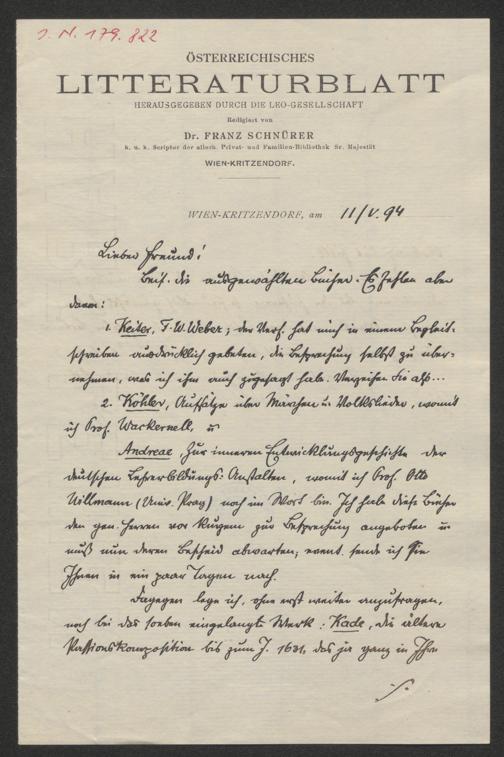 J. N. 179.822
ÖSTERREICHISCHES
LITTERATURBLATT
HERAUSGEGEBEN DURCH DIE LEO-GESELLSCHAFT
Redigiert von
Dr. FRANZ SCHNÜRER
k. u. k. Scriptor der allerh. Privat- und Familien-Bibliothek Sr. Majestät
WIEN-KRITZENDORF.
WIEN-KRITZENDORF, am 11/V. 94
Lieber Freund!
Beif. die ausgewählten Bücher. Es fehlen aber
davon:
1. Keiter, F. W. Weber; der Verf. hat mich in einem Begleit-
schreiben ausdrücklich gebeten, die Besprechung selbst zu über-
nehmen, was ich ihm auch zugesagt habe. Verzeihen Sie also...
2. Köhler, Aufsätze über Märchen u. Volkslieder, womit
ich Prof. Wackernell, u
Andreae, Zur inneren Entwicklungsgeschichte der
deutschen Lehrerbildungs-Anstalten, womit ich Prof. Otto
Willmann (Univ. Prag) noch im Wort bin. Ich habe diese Bücher
den gen. Herren vor kurzem zur Besprechung angeboten u
muß nun deren Bescheid abwarten; event. sende ich Sie
Ihnen in ein paar Tagen nach.
Dagegen lege ich, ohne erst weiter anzufragen,
noch bei das soeben eingelangte Werk: Kade, die ältere
Passionskomposition bis zum J. 1631, das ja ganz in Ihr